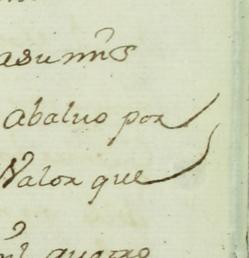 asumŭs
abaluo por
Valor que
mil quatro